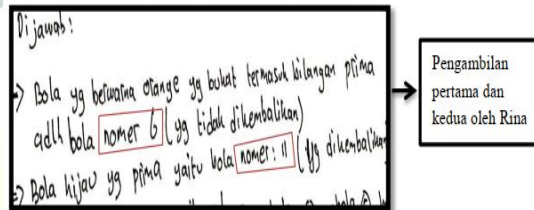 Dijawab:
=> Bola yg berwarna orange yg bukat termasuk bilangan prima
adlh bola nomer 6 (yg tidak dikembalikan)
=> Bola hijau yg prima yaitu bola nomer: 11 (yg dikembalikan
Pengambilan
pertama dan
kedua oleh Rina